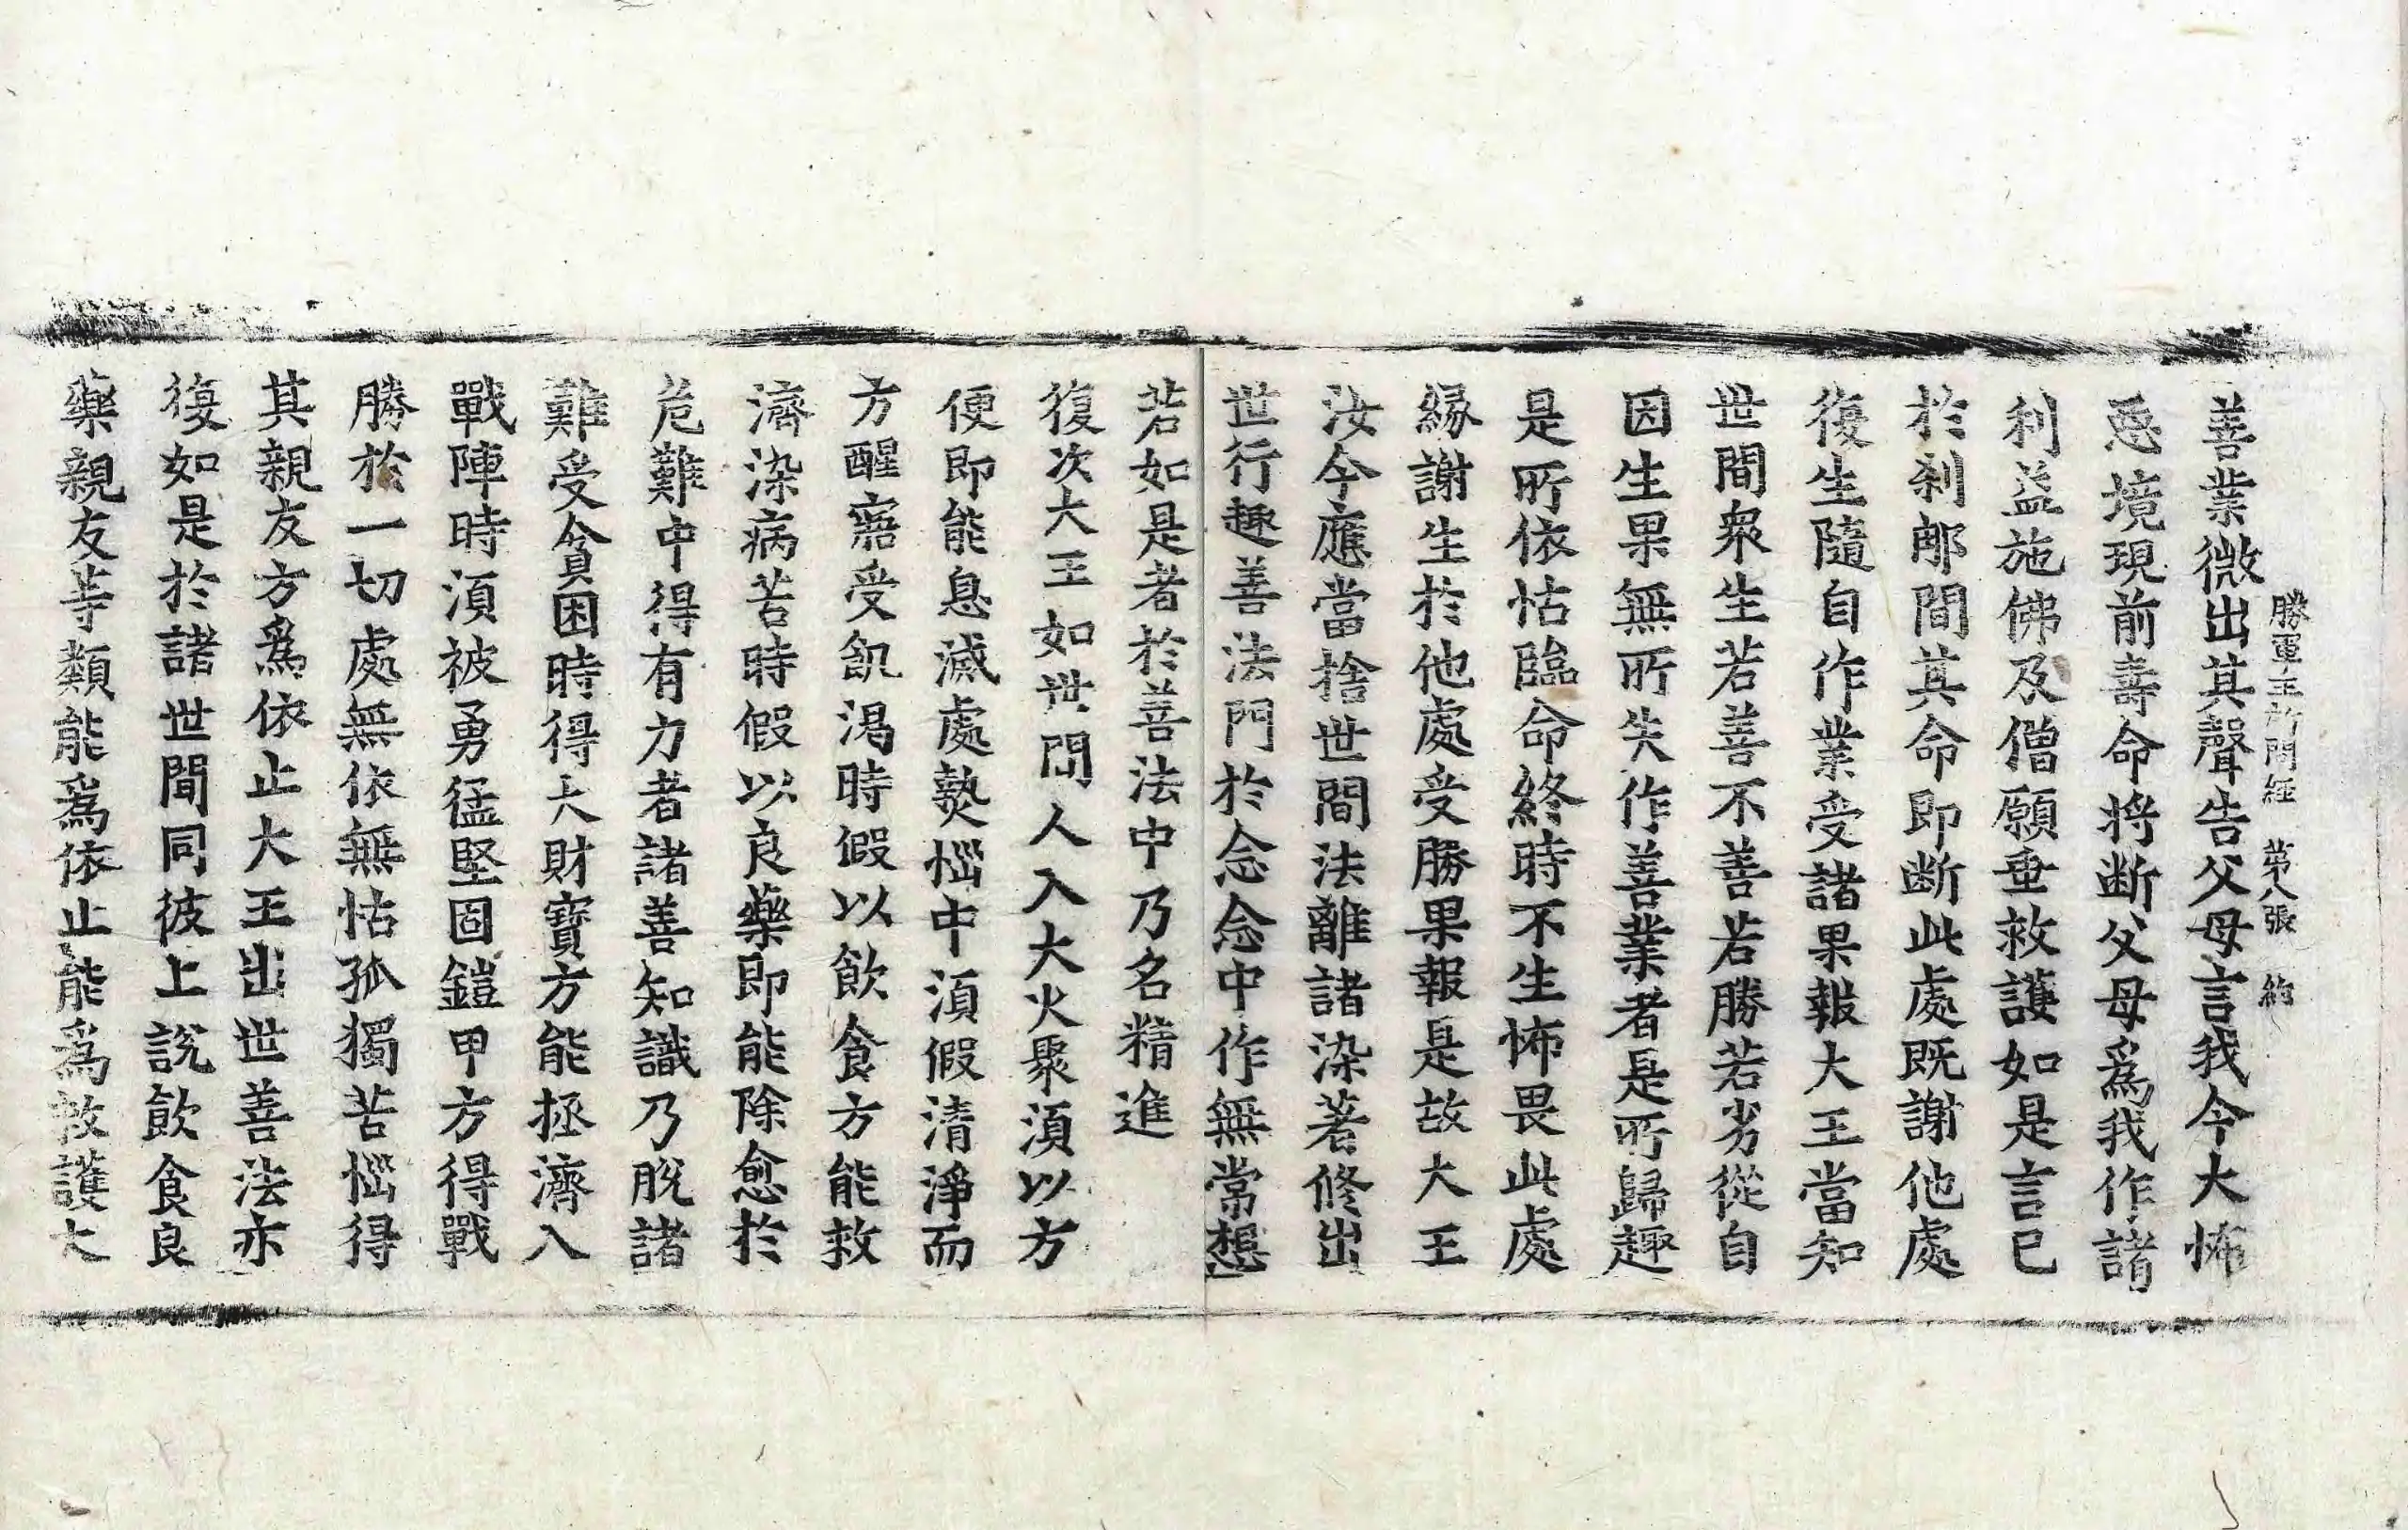 勝軍王所問經 第八張 約
善業微出其聲告父母言我今大怖
惡境現前壽命將断父母爲我作諸
利益施佛及僧願垂救護如是言已
於刹那間其命即断此處既謝他處
復生隨自作業受諸果報大王當知
世間衆生若善不善若勝若劣從自
因生果無所失作善業者是所歸趣
是所依怙臨命終時不生怖畏此處
縁謝生於他處受勝果報是故大王
汝今應當捨世間法離諸染著修出
世行趣善法門於念念中作無常想
若如是者於善法中乃名精進
復次大王如世間人入大火聚湏以方
便即能息滅處熱惱中湏假清淨而
方醒寤受飢渴時假以飲食方能救
濟染病苦時假以良藥即能除愈於
危難中得有力者諸善知識乃脫諸
難受貧困時得大財寶方能拯濟入
戰陣時湏被勇猛堅固鎧甲方得戰
勝於一切處無依無怙孤獨苦惱得
其親友方爲依止大王出世善法亦
復如是於諸世間同彼上說飲食良
藥親友䓁類能爲依止能爲救護大